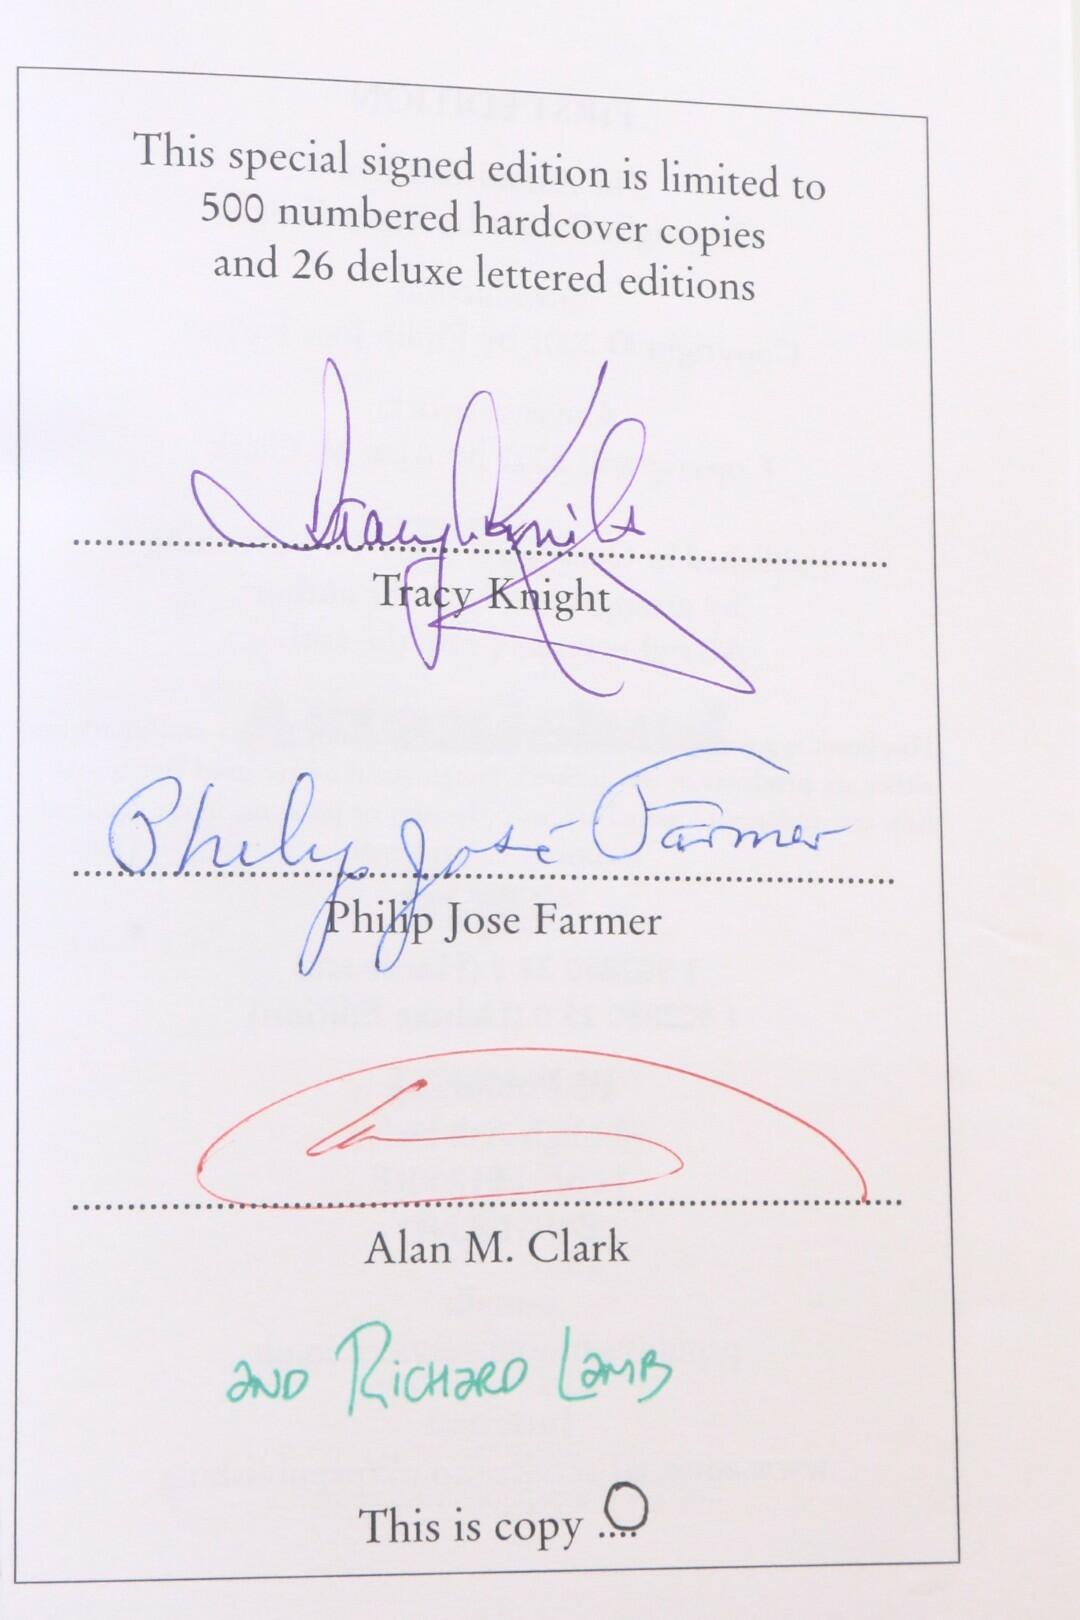 This special signed edition is limited to
500 numbered hardcover copies
and 26 deluxe lettered editions
Tracy Knight
Tracy Knight
Philip José Farmer
Philip Jose Farmer
Alan M. Clark
and RICHARD LAMB
This is copy ....O